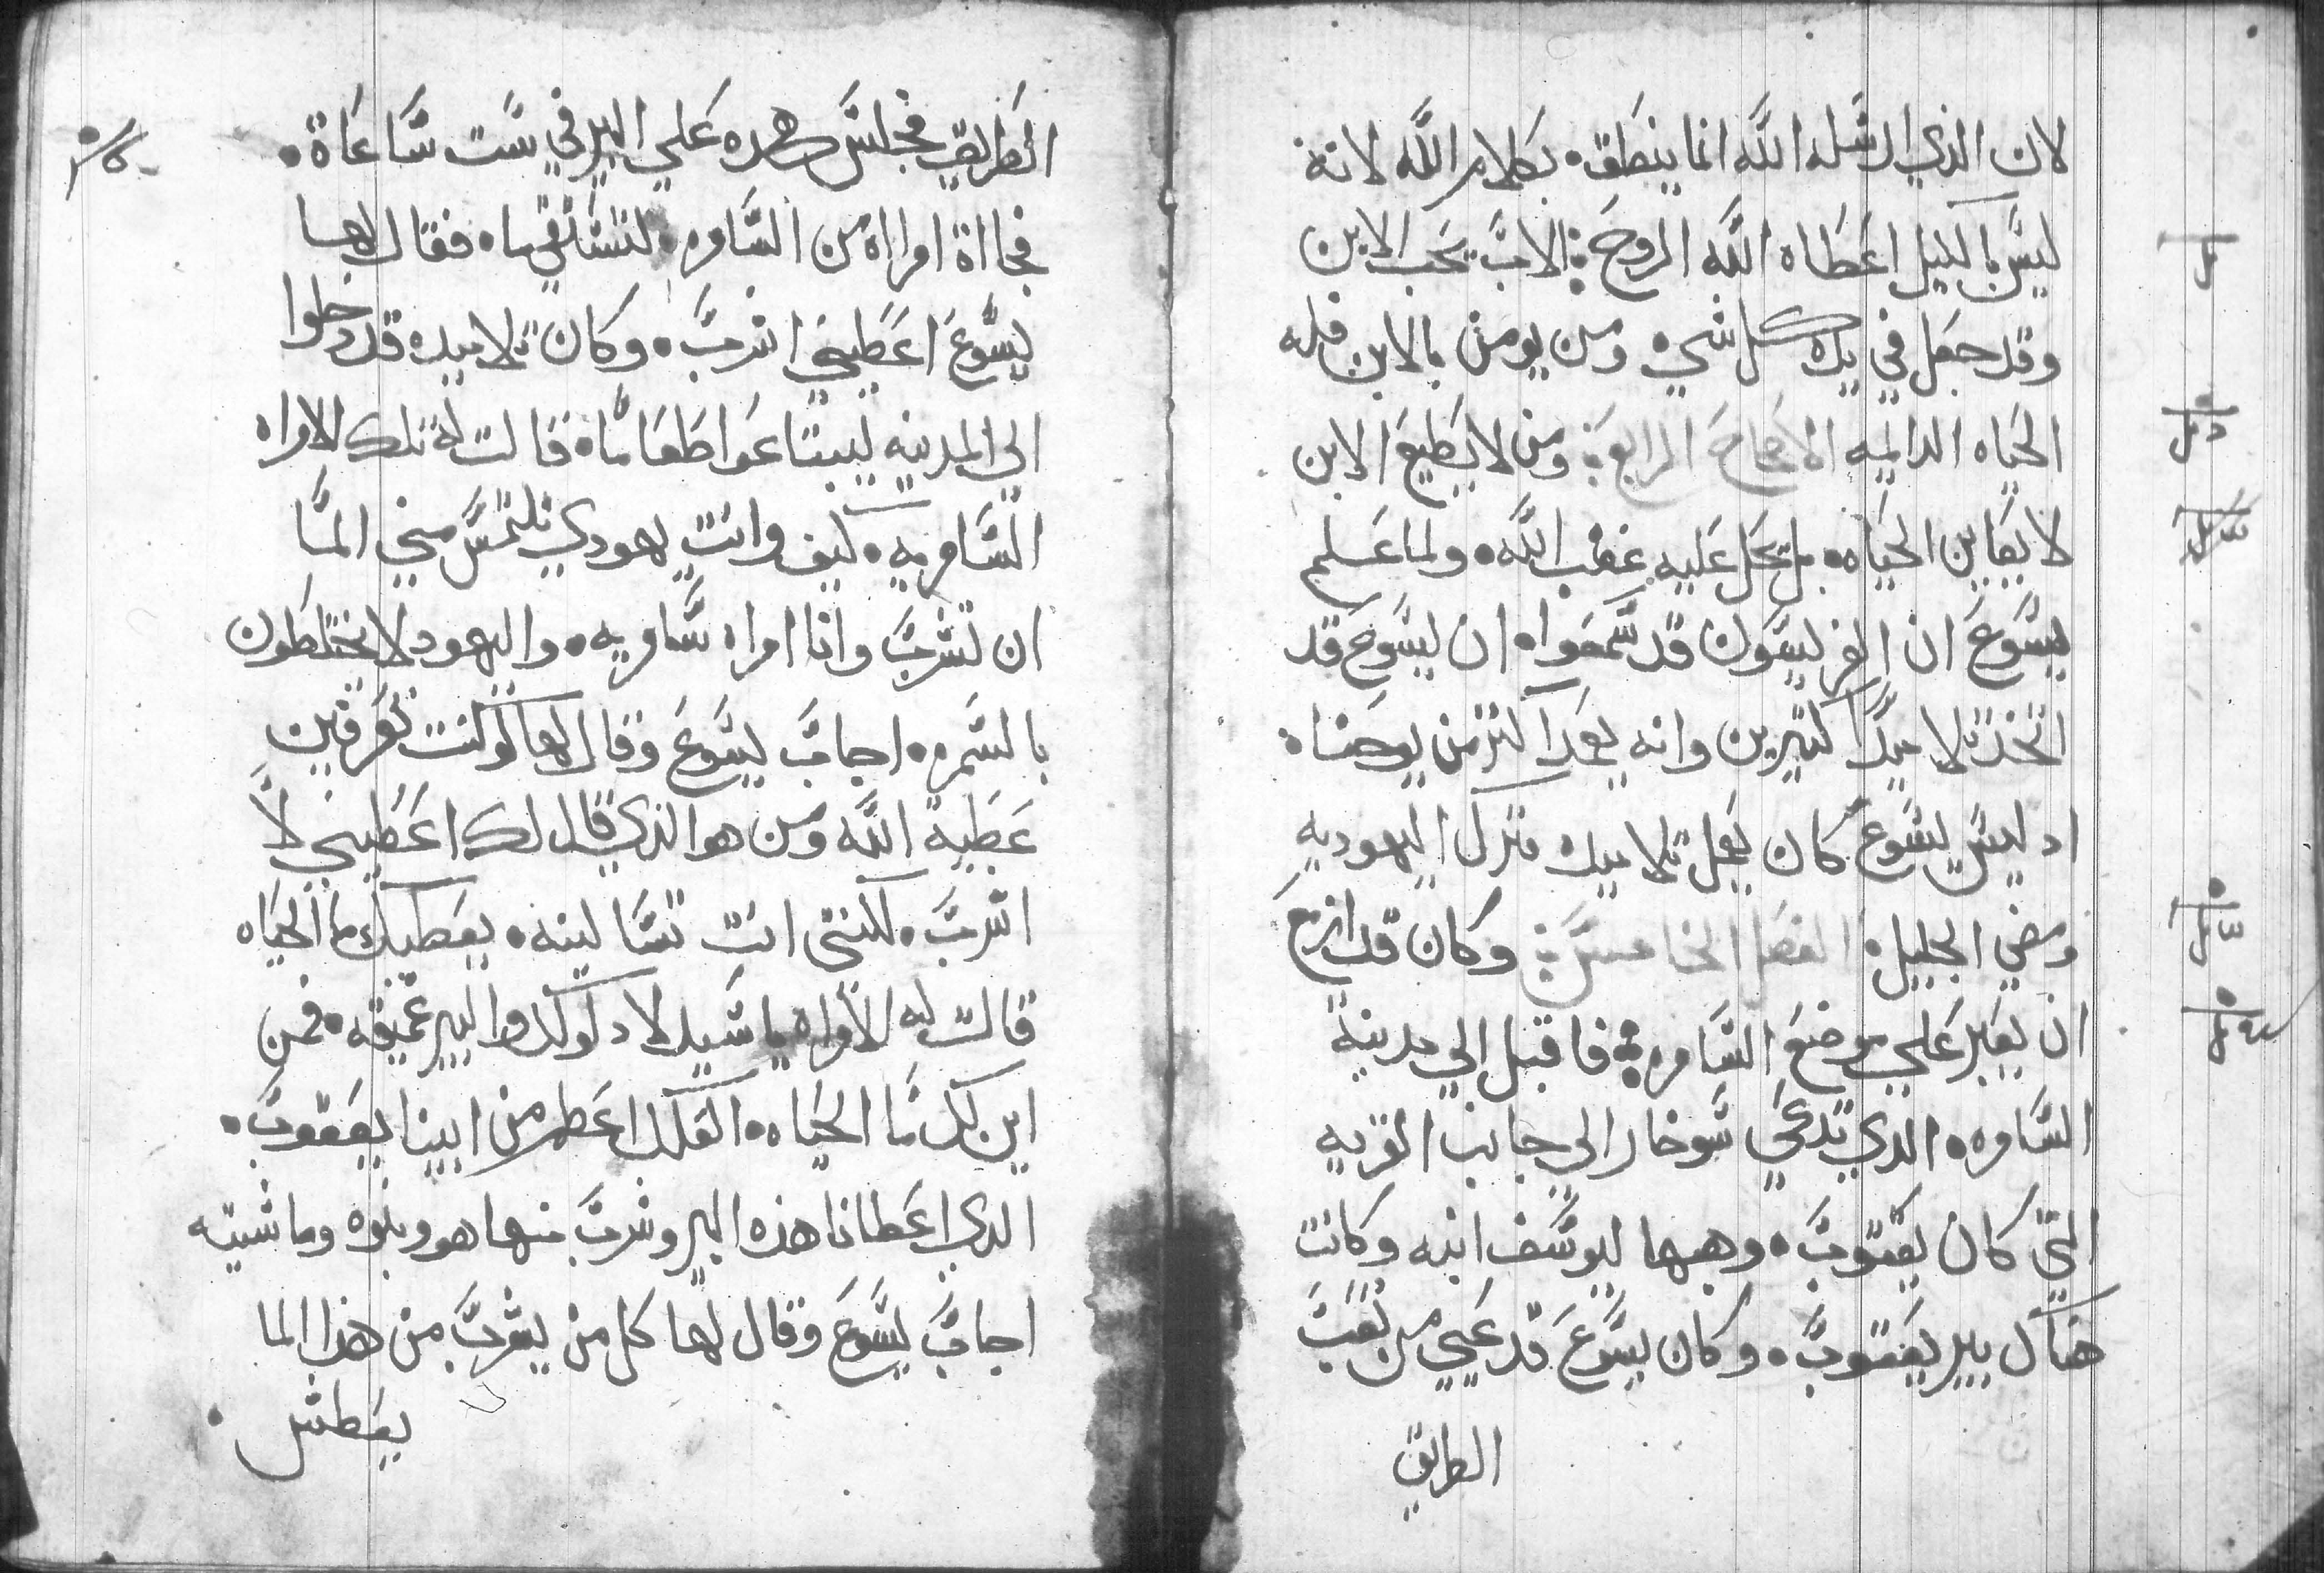 لان الذي ارسله الله انما ينطق. بكلام الله لانه
ليس بالكيل اعطاه الله الروح: الاب يحب الابن
وقد جعل في يده كل شي ومن يومن بالابن فله
الحياه الدايمه الاصحاح الرابع: ومن لا يطيع الابن
لا يعاين الحياه. بل يحل عليه غضب الله. ولما علم
يسوع ان الفريسون قد سمعوا. ان يسوع قد
اتخذ تلاميدا كتيرين وانه يعمد اكتر من يوحنا.
اد ليس يسوع كان يعمل تلاميده فترك اليهوديه
ومضي الجليل. الفصل الخامس: وكان قد ازمع
ان يعبر علي موضع السامره: فاقبل الي مدينة
السامره. الدي تدعي سوخار الي جانب القريه
التي كان يعقوب. وهبها ليوسف ابنه وكانت
هناك بير يعقوب. وكان يسوع قد عيي من تعب
الطريق
الطريق فجلس هده علي البير في ست ساعاة.
فجااة امراة من السامره. لتستقي ما. فقال لها
يسوع اعطيني اشرب. وكان تلاميده قد دخلوا
الي المدينه ليبتاعوا طعاما. قالت له تلك الامراه
السامريه. كيف وانت يهودي تلتمس مني الما
ان تشرب وانا امراه سامريه. واليهود لا يختلطون
بالسمره. اجاب يسوع وقال لها لو كنت تعرفين
عطية الله ومن هو الذي قال لك اعطيني لا
اشرب. لكنتي انت تسالينه. يعطيك ما الحياه
قالت له الامراه يا سيد لا دلو لك والبير عميقه. فمن
اين لك ما الحياه. العلك اعطم من ابينا يعقوب.
الدي اعطانا هذه البير وشرب منها هو وبنوه وماشيته
اجاب يسوع وقال لها كل من يشرب من هذا الما
يعطش